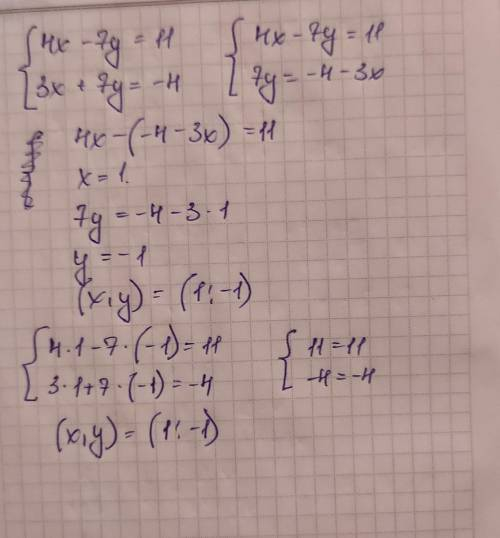 4x - 7y = 11    4x - 7y = 11
3x + 7y = -4    7y = -4 - 3x
4x - (-4 - 3x) = 11
x = 1.
7y = -4 - 3 · 1
y = -1
(x, y) = (1; -1)
4 · 1 - 7 · (-1) = 11    11 = 11
3 · 1 + 7 · (-1) = -4    -4 = -4
(x, y) = (1; -1)